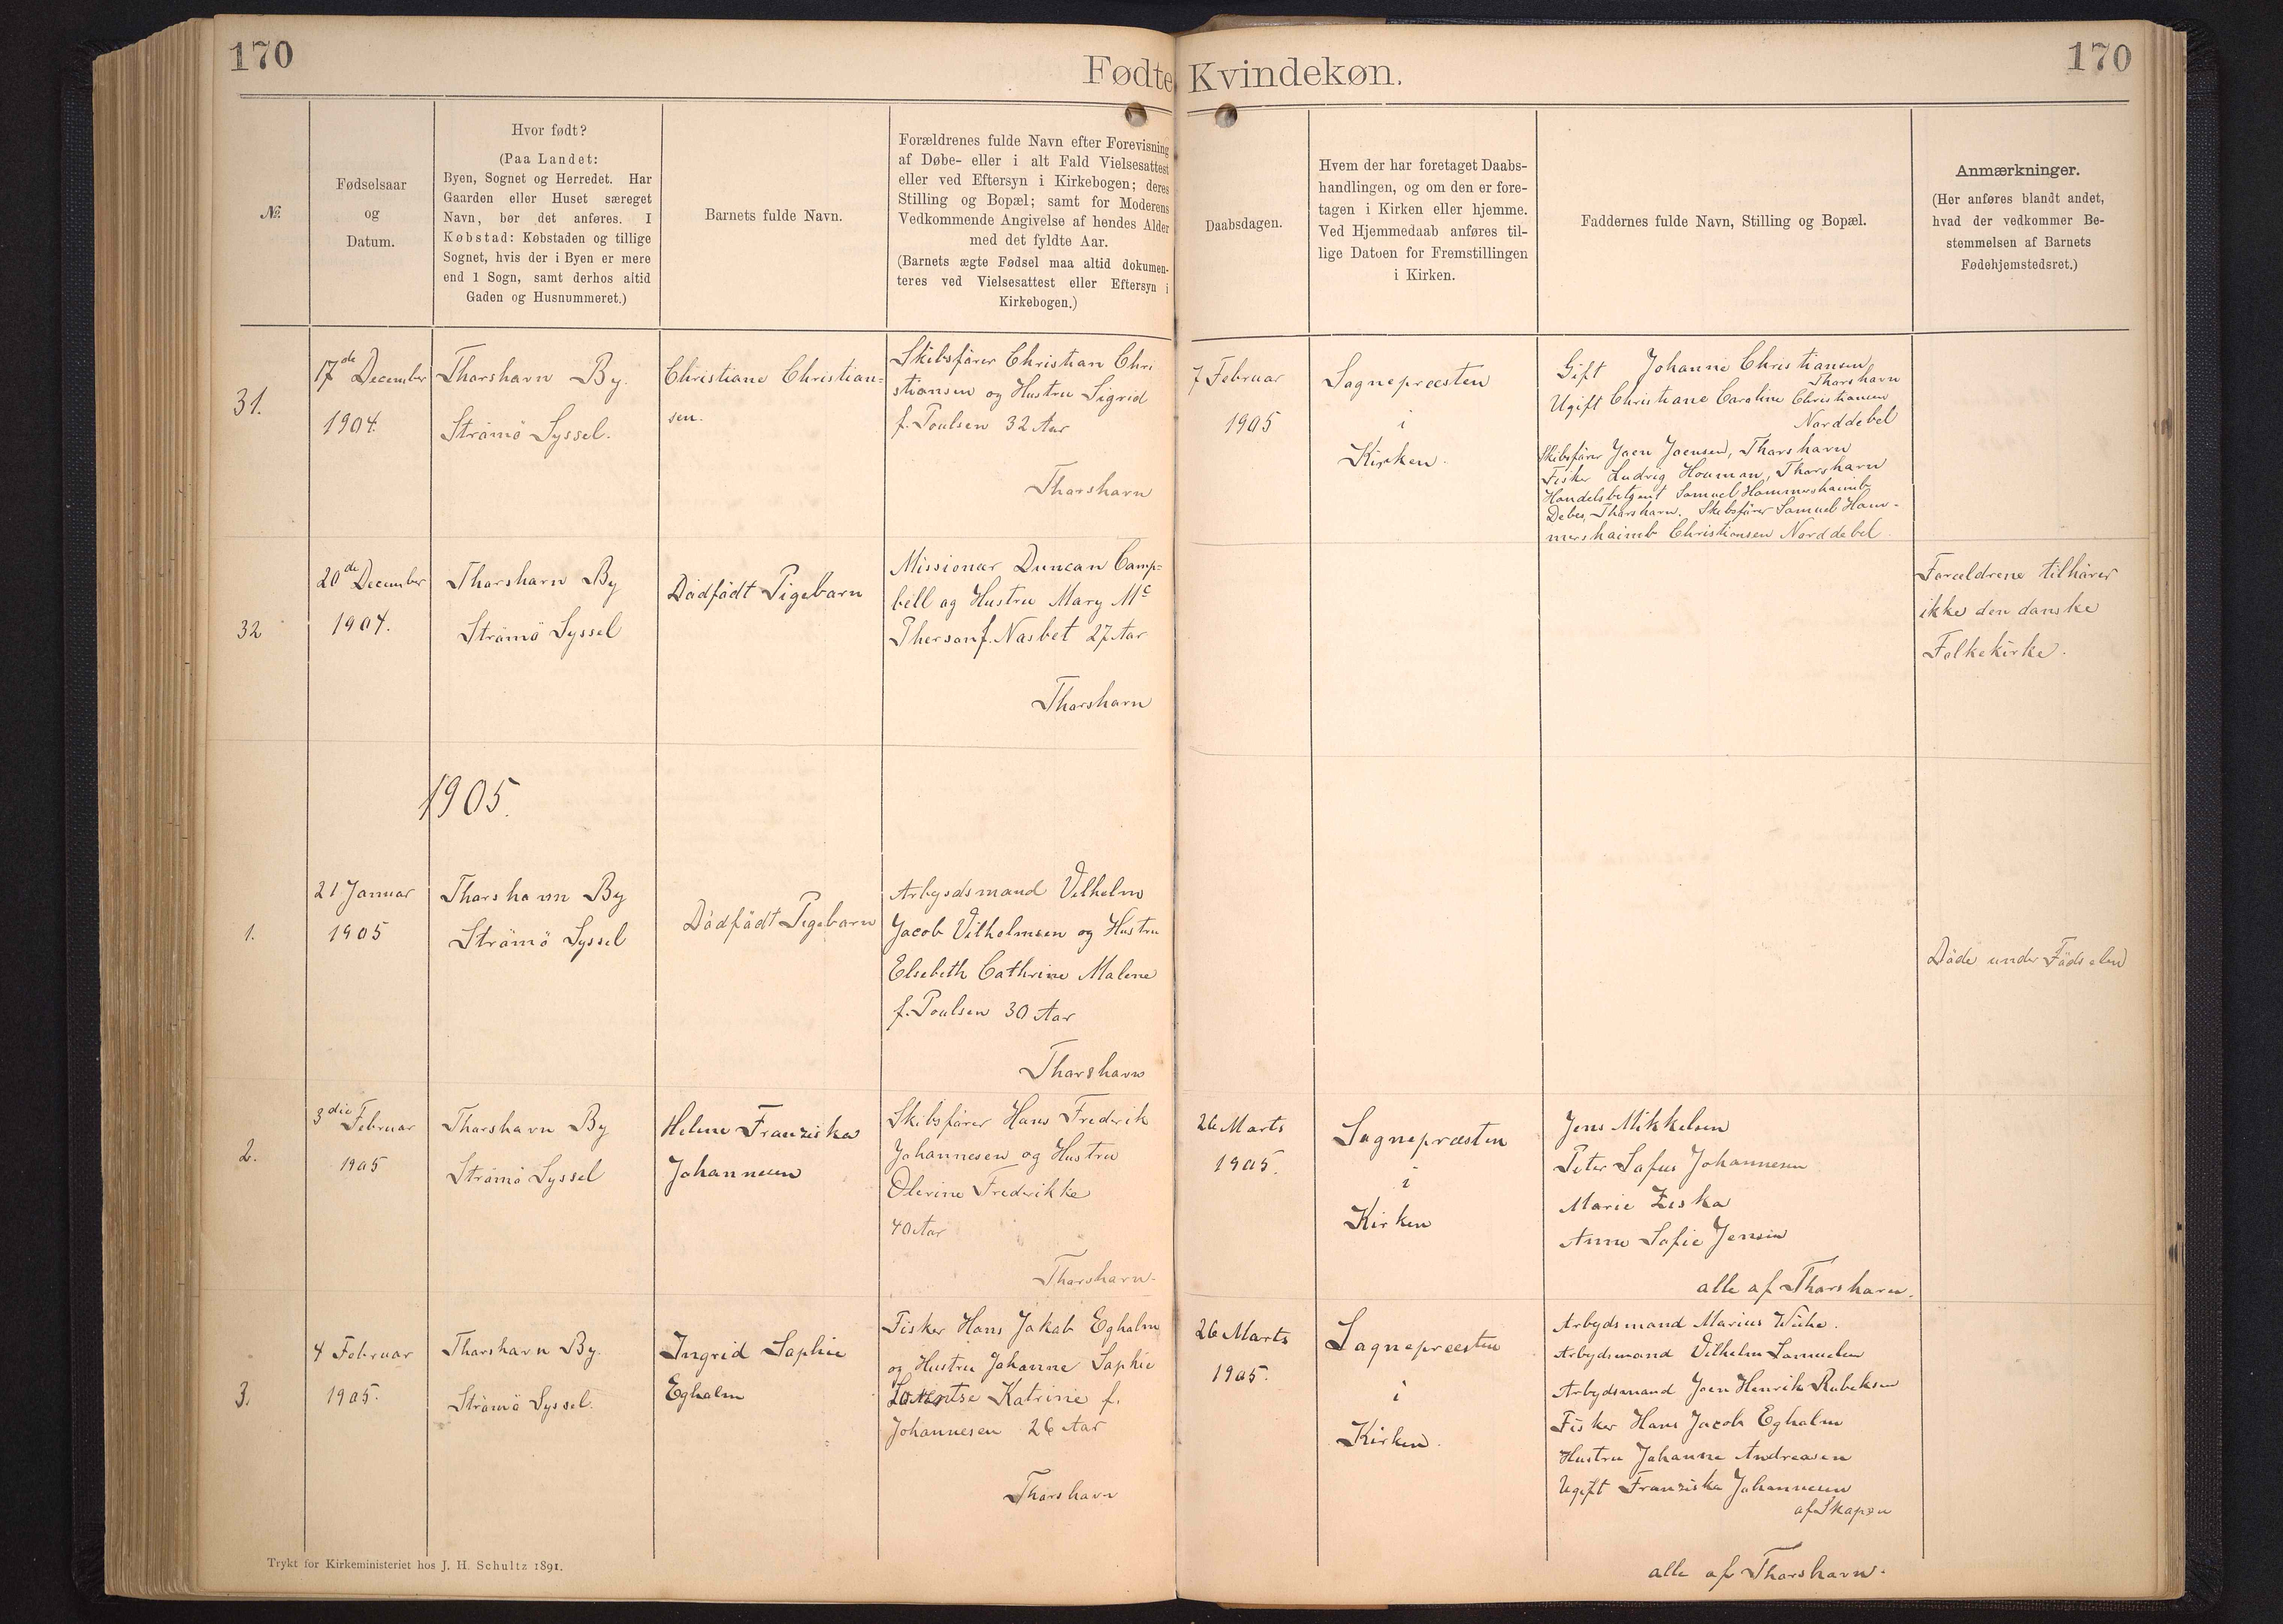 170
Fødte Kvindekøn.
170
№.
Fødselsaar
og
Datum.
Hvor født?
(Paa Landet:
Byen, Sognet og Herredet. Har
Gaarden eller Huset særeget
Navn, bør det anføres. I
Købstad: Købstaden og tillige
Sognet, hvis der i Byen er mere
end 1 Sogn, samt derhos altid
Gaden og Husnummeret.)
Barnets fulde Navn.
Forældrenes fulde Navn efter Forevisning
af Døbe- eller i alt Fald Vielsesattest
eller ved Eftersyn i Kirkebogen; deres
Stilling og Bopæl; samt for Moderens
Vedkommende Angivelse af hendes Alder
med det fyldte Aar.
(Barnets ægte Fødsel maa altid dokumen-
teres ved Vielsesattest eller Eftersyn i
Kirkebogen.)
Daabsdagen.
Hvem der har foretaget Daabs-
handlingen, og om den er fore-
tagen i Kirken eller hjemme.
Ved Hjemmedaab anføres til-
lige Datoen for Fremstillingen
i Kirken.
Faddernes fulde Navn, Stilling og Bopæl.
Anmærkninger.
(Her anføres blandt andet,
hvad der vedkommer Be-
stemmelsen af Barnets
Fødehjemstedsret.)
31.
17de December
1904.
Thorshavn By.
Strömö Syssel.
Christiane Christian-
sen.
Skibsfører Christian Chri
stiansen og Hustru Sigrid
f. Poulsen 32 Aar
Thorshavn
7 Februar
1905
Sognepræsten
i
Kirken.
Gift Johanne Christiansen
Thorshavn
Ugift Christiane Caroline Christiansen
Norddebel
Skibsfører Joen Joensen, Thorshavn
Fisker Ludvig Houman, Thorshavn
Handelsbetjent Samuel Hammershaimb
Debes, Thorshavn. Skibsfører Samuel Ham-
mershaimb Christiansen Norddebel.
32
20de December
1904.
Thorshavn By
Strömö Syssel
Dödfödt Pigebarn
Missionær Duncan Camp-
bell og Hustru Mary Mc
Pherson f. Nasbet 27 Aar
Thorshavn
Forældrene tilhörer
ikke den danske
Folkekirke.
1905.
1.
21 Januar
1905
Thorshavn By
Strömö Syssel
Dödfödt Pigebarn
Arbejdsmand Vilhelm
Jacob Vilhelmsen og Hustru
Elsebeth Cathrine Malene
f. Poulsen 30 Aar
Thorshavn
Döde under Födselen
2.
3die Februar
1905
Thorshavn By
Strömö Syssel
Helene Franziska
Johannesen
Skibsfører Hans Frederik
Johannesen og Hustru
Olevine Frederikke
40 Aar
Thorshavn.
26 Marts
1905.
Sognepræsten
i
Kirken
Jens Mikkelsen
Peter Sofus Johannesen
Marie Ziska
Anne Sofie Jensen
alle af Thorshavn.
3.
4 Februar
1905.
Thorshavn By.
Strömö Syssel.
Ingrid Sophie
Egholm
Fisker Hans Jakob Egholm
og Hustru Johanne Sophie
Katrine f.
Johannesen 26 Aar
Thorshavn
26 Marts
1905.
Sognepræsten
i
Kirken.
Arbejdsmand Marius
Arbejdsmand Vilhelm Samuelsen
Arbejdsmand Joen Henrik Rubeksen
Fisker Hans Jacob Egholm
Hustru Johanne Andreasen
Ugift Franziska Johannesen
af Skapen
alle af Thorshavn.
Trykt for Kirkeministeriet hos J. H. Schultz 1891.